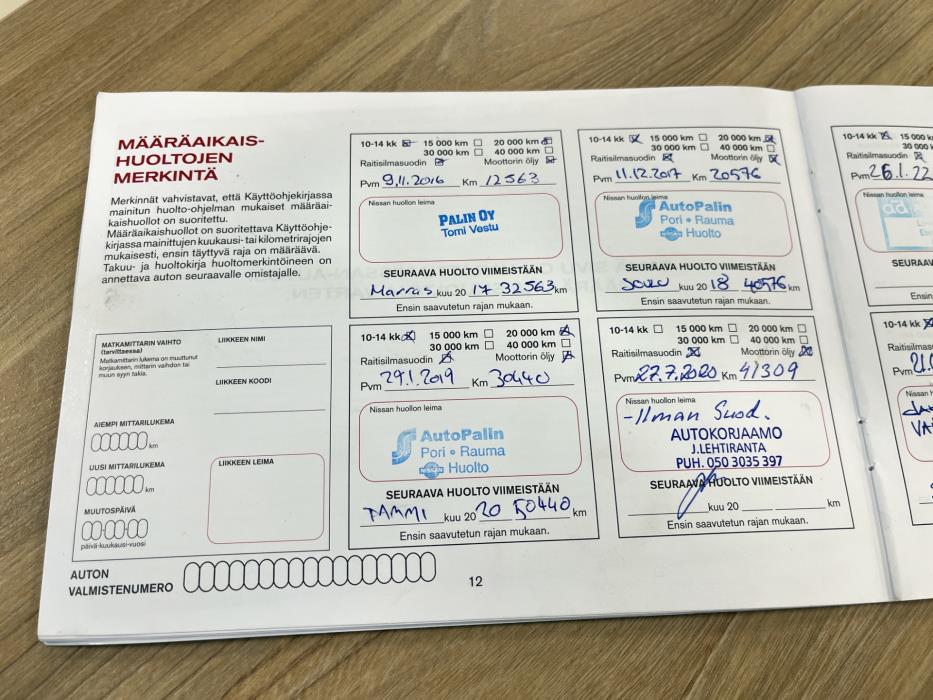 MÄÄRÄAIKAIS-
HUOLTOJEN
MERKINTÄ
Merkinnät vahvistavat, että Käyttöohjekirjassa
mainitun huolto-ohjelman mukaiset määräai-
kaishuollot on suoritettu.
Määräaikaishuollot on suoritettava Käyttöohje-
kirjassa mainittujen kuukausi- tai kilometrirajojen
mukaisesti, ensin täyttyvä raja on määräävä.
Takuu- ja huoltokirja huoltomerkintöineen on
annettava auton seuraavalle omistajalle.
MATKAMITTARIN VAIHTO
(tarvittaessa)
Matkamittarin lukema on muuttunut
korjauksen, mittarin vaihdon tai
muun syyn takia.
AIEMPI MITTARILUKEMA
km
UUSI MITTARILUKEMA
km
MUUTOSPÄIVÄ
päivä-kuukausi-vuosi
LIIKKEEN NIMI
LIIKKEEN KOODI
LIIKKEEN LEIMA
AUTON
VALMISTENUMERO
10-14 kk 15 000 km 20 000 km
30 000 km 40 000 km
Raitisilmasuodin Moottorin öljy
Pvm 9.11.2016 Km 12563
Nissan huollon leima
PALIN OY
Tomi Vestu
SEURAAVA HUOLTO VIIMEISTÄÄN
Marras kuu 20 17 32563 km
Ensin saavutetun rajan mukaan.
10-14 kk 15 000 km 20 000 km
30 000 km 40 000 km
Raitisilmasuodin Moottorin öljy
Pvm 11.12.2017 Km 20576
Nissan huollon leima
AutoPalin
Pori • Rauma
NISSAN Huolto
SEURAAVA HUOLTO VIIMEISTÄÄN
Joulu kuu 20 18 40576 km
Ensin saavutetun rajan mukaan.
10-14 kk 15 000 km 20 000 km
30 000 km 40 000 km
Raitisilmasuodin Moottorin öljy
Pvm 29.1.2019 Km 30440
Nissan huollon leima
AutoPalin
Pori • Rauma
NISSAN Huolto
SEURAAVA HUOLTO VIIMEISTÄÄN
TAMMI kuu 20 20 50440 km
Ensin saavutetun rajan mukaan.
10-14 kk 15 000 km 20 000 km
30 000 km 40 000 km
Raitisilmasuodin Moottorin öljy
Pvm 27.7.2020 Km 41309
Nissan huollon leima
-Ilman Suod.
AUTOKORJAAMO
J.LEHTIRANTA
PUH. 050 3035 397
SEURAAVA HUOLTO VIIMEISTÄÄN
kuu 20 km
Ensin saavutetun rajan mukaan.
12
10-14 kk 15 000 k
30 000
Raitisilmasuodin
Pvm 26.1.22
Nissan huollon leima
ad
SEURAAV
Ensin
10-14 kk
Raitisilmas
Pvm
Nissan